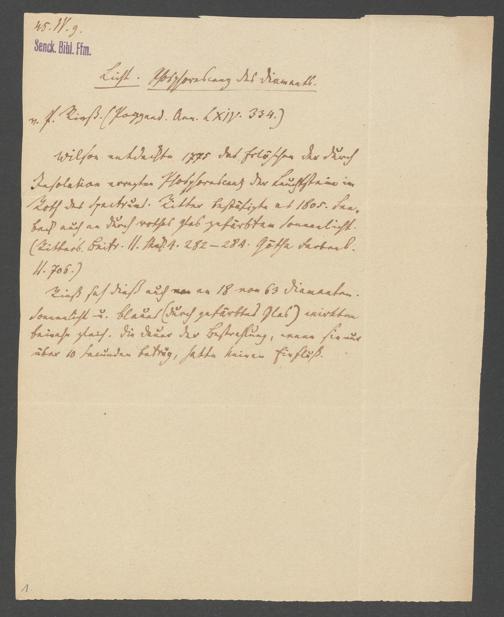 45. IV. g.
Senck. Bibl. Ffm.
Licht. Phosphorescenz des Diamants.
v. P. Rieß. (Poggend. Ann. LXIV. 334.)
Wilson entdeckte 1775 das Erlöschen der durch
Insolation erregten Phosphorescenz der Leuchtsteine im
Roth des Spectrums. Ritter bestätigte es 1801. See-
beck auch an durch rothes Glas gefärbtem Sonnenlicht.
(Ritters Beitr. II. 4. 282–284. Göthe Farbenl.
II. 706.)
Rieß sah dieß auch an 18 von 63 Diamanten.
Sonnenlicht u. blaues (durch gefärbtes Glas) wirkten
beinahe gleich. Die Dauer der Bestrahlung, wenn sie nur
über 10 Secunden betrug, hatte keinen Einfluß.
1